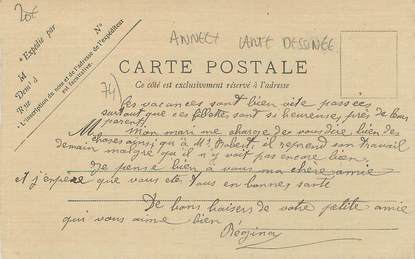 20€
ANNECY CARTE DESSINÉE
N°
* Expédié par
M
Dem^t à
Rue
* L'inscription du nom et de l'adresse de l'expéditeur est facultative.
CARTE POSTALE
Ce côté est exclusivement réservé à l'adresse
74)
Ces vacances sont bien vite passées
surtout que ces fillette, sont si heureuses près de leurs
parent,
M Mon mari me charge de vous dire bien des
choses ainsi qu'à Mr Robert, il reprend son travail
demain malgré qu'il n'y voit pas encore bien.
Je pense bien à vous ma chère amie
et j'espère que vous ete tous en bonnes santé
De bons baisers de votre petite amie
qui vous aime bien
Régina